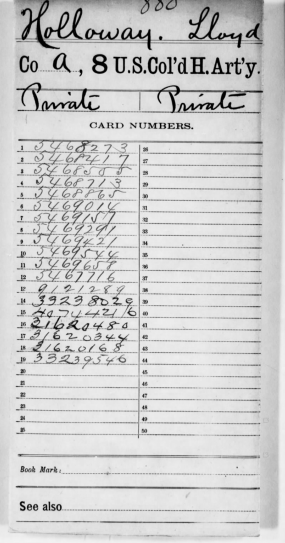 Holloway. Lloyd
Co A, 8 U.S.Col'd H. Art'y.
Private Private
CARD NUMBERS.
1 5468273 26
2 5468417 27
3 5468585 28
4 5468713 29
5 5468865 30
6 5469014 31
7 5469157 32
8 5469291 33
9 5469421 34
10 5469544 35
11 5469658 36
12 5467716 37
13 9121289 38
14 33238029 39
15 40744216 40
16 31620480 41
17 31620344 42
18 31620168 43
19 33239546 44
20 45
21 46
22 47
23 48
24 49
25 50
Book Mark:
See also